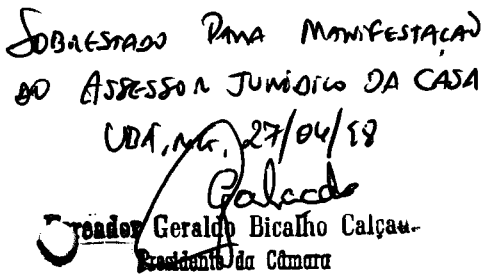 SOBRESTADO PARA MANIFESTAÇÃO
DO ASSESSOR JURÍDICO DA CASA
UBÁ, MG, 27/04/98
Vereador Geraldo Bicalho Calçau
Presidente da Câmara